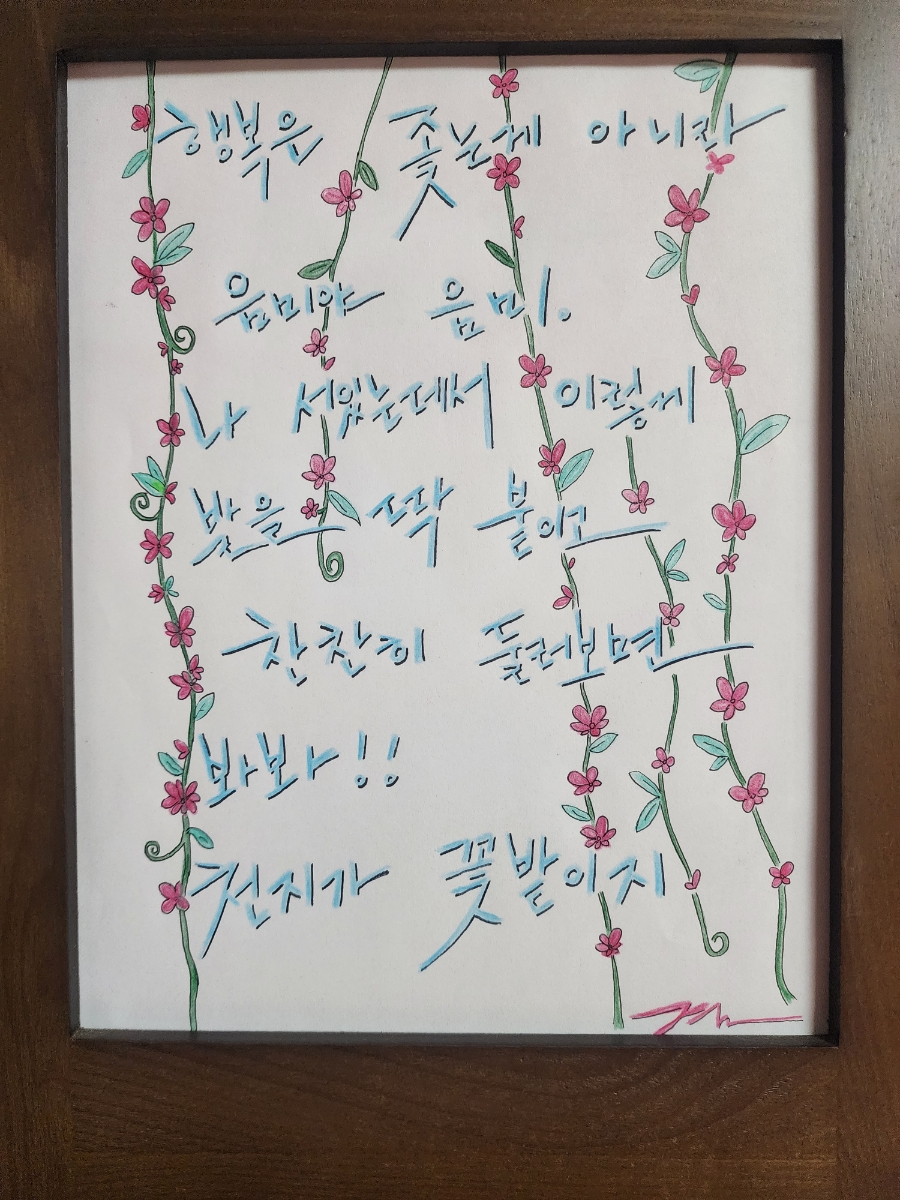 행복은 좇는게 아니라
음미야 음미.
나 서있는데서 이렇게
발을 딱 붙이고
찬찬히 둘러보면
봐봐!!
천지가 꽃밭이지